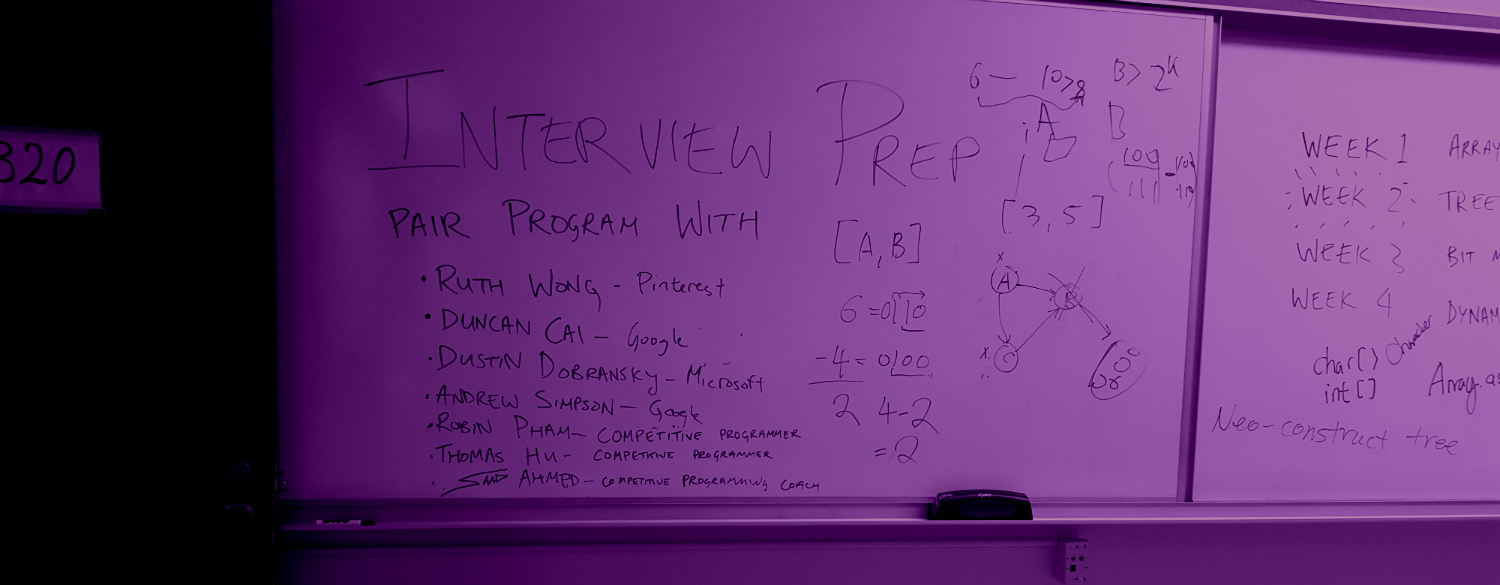 320
INTERVIEW PREP
PAIR PROGRAM WITH
• RUTH WONG - Pinterest
• DUNCAN CAI - Google
• DUSTIN DOBRANSKY - Microsoft
• ANDREW SIMPSON - Google
• ROBIN PHAM - COMPETITIVE PROGRAMMER
• THOMAS HU - COMPETITIVE PROGRAMMER
• AHMED - COMPETITIVE PROGRAMMING COACH
6 — 10>8
B > 2^k
A
B
[3, 5]
[A, B]
6 = 0110
-4 = 0100
2 4-2
= 2
A
B
C
WEEK 1 ARRAY
WEEK 2 TREE
WEEK 3 BIT
WEEK 4 DYNAM
char[] Character
int[] Array.as
Neo-construct tree